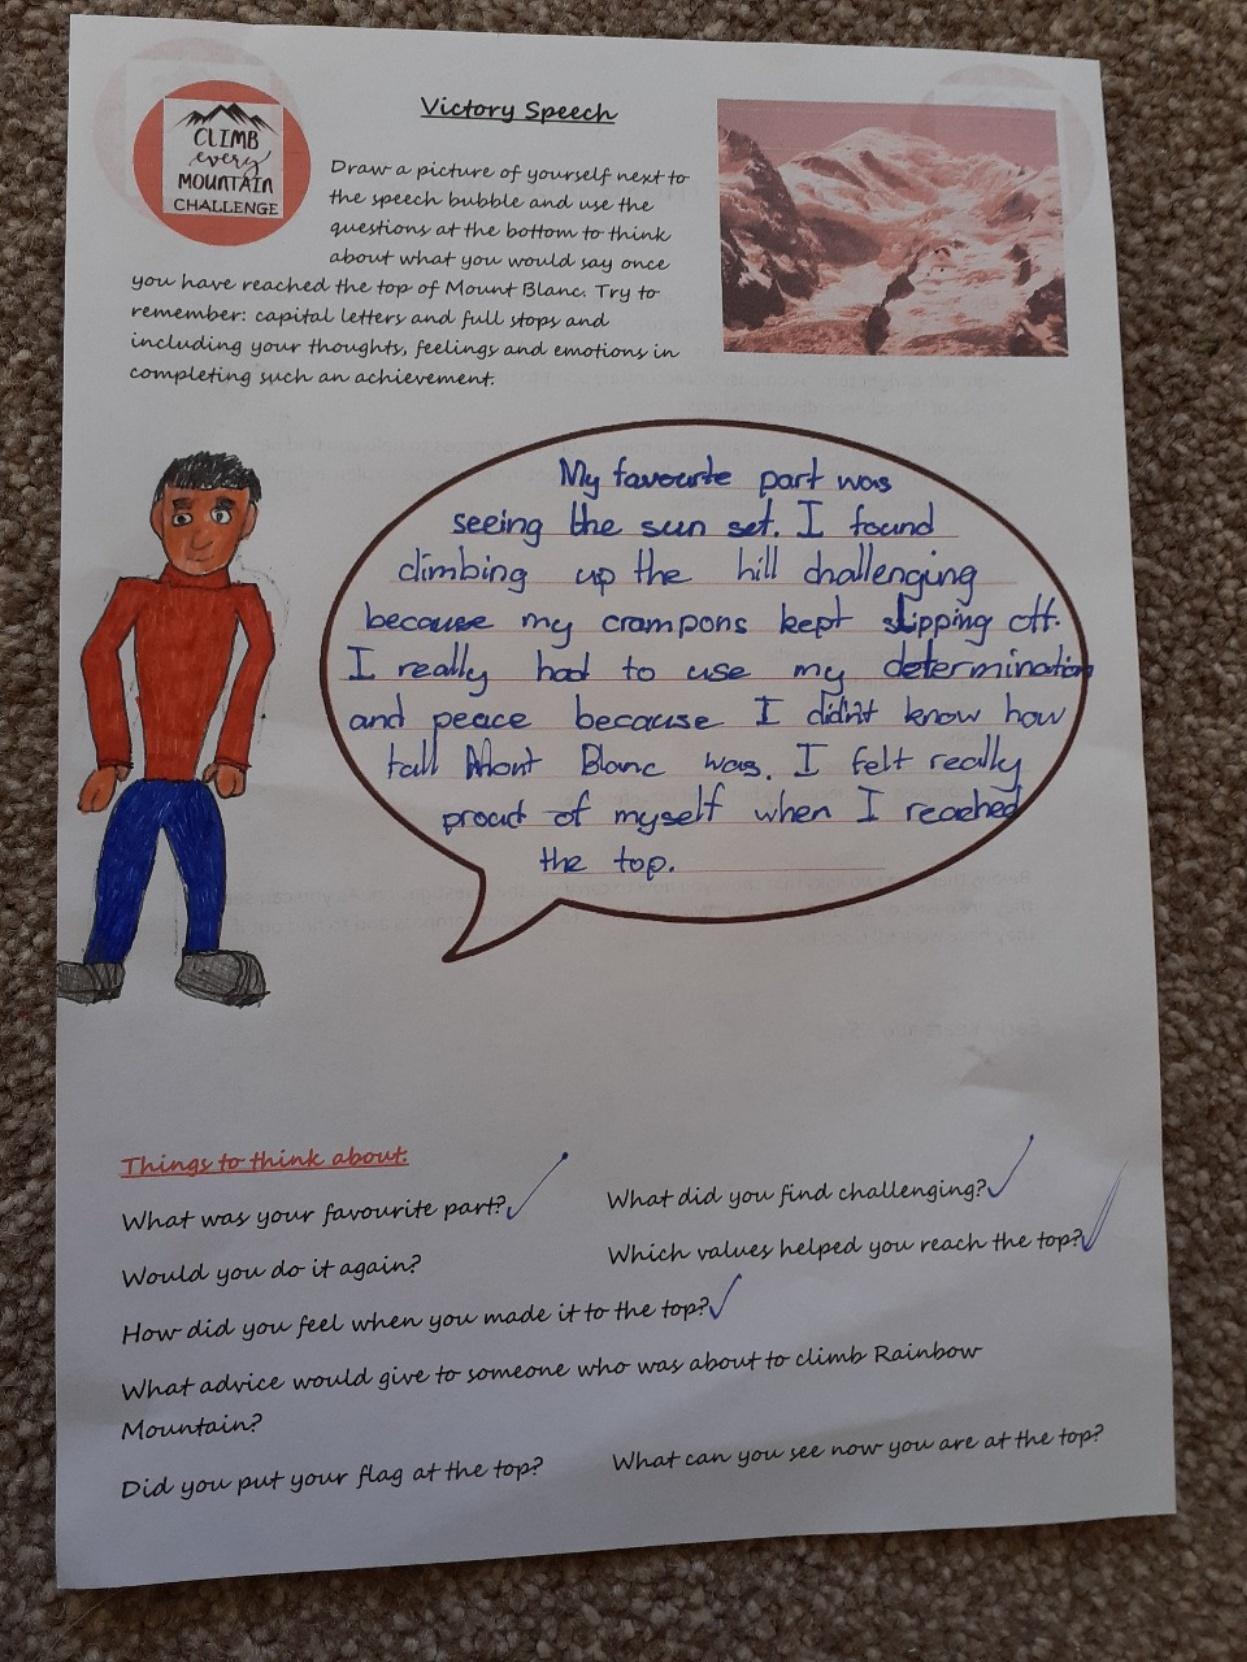 Victory Speech
CLIMB
every
MOUNTAIN
CHALLENGE
Draw a picture of yourself next to
the speech bubble and use the
questions at the bottom to think
about what you would say once
you have reached the top of Mount Blanc. Try to
remember: capital letters and full stops and
including your thoughts, feelings and emotions in
completing such an achievement.
My favourite part was
seeing the sun set. I found
climbing up the hill challenging
because my crampons kept slipping off.
I really had to use my determination
and peace because I didn't know how
tall Mont Blanc was. I felt really
proud of myself when I reached
the top.
Things to think about:
What was your favourite part?
What did you find challenging?
Would you do it again?
Which values helped you reach the top?
How did you feel when you made it to the top?
What advice would give to someone who was about to climb Rainbow
Mountain?
Did you put your flag at the top?
What can you see now you are at the top?